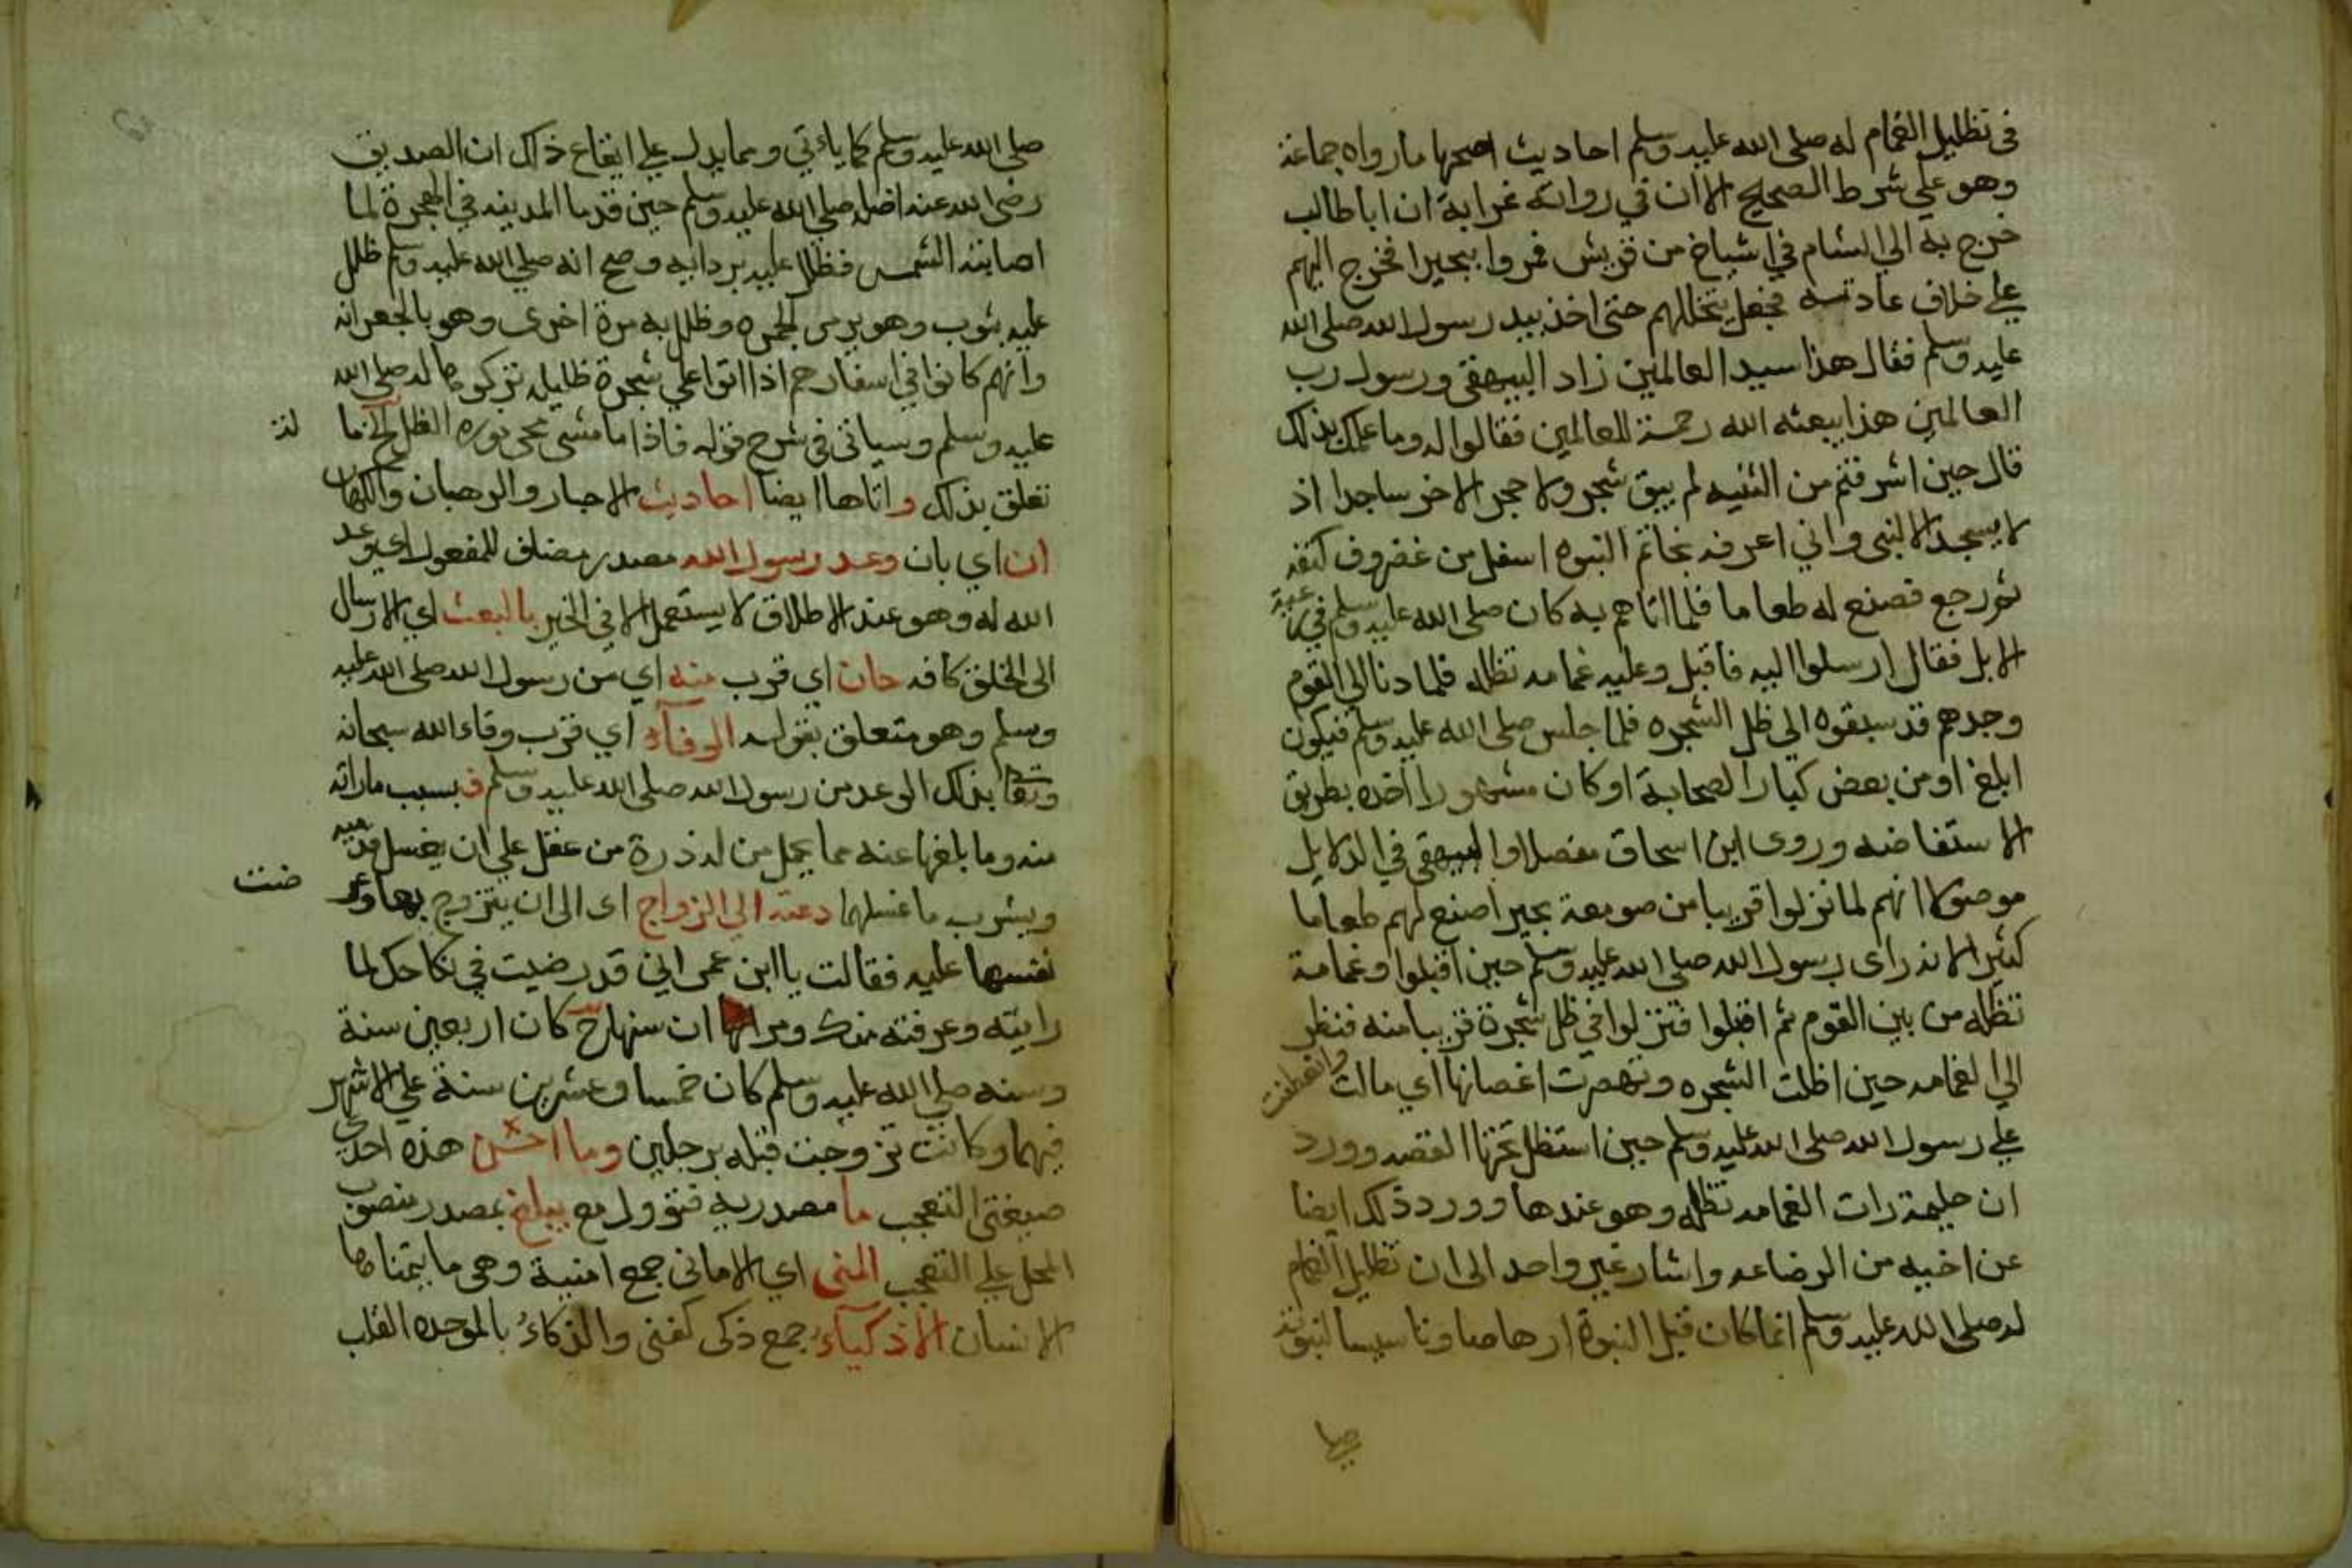 في تظليل الغمام له صلى الله عليه وسلم احاديث اصحها ما رواه جماعة
وهو علي شرط الصحيح الا ان في رواته غرابة ان ابا طالب
خرج به الي الشام في اشياخ من قريش فمروا ببحيرا فخرج اليهم
علي خلاف عادته فجعل يتخللهم حتى اخذ بيد رسول الله صلى الله
عليه وسلم فقال هذا سيد العالمين زاد البيهقي ورسول رب
العالمين هذا يبعثه الله رحمة للعالمين فقالوا له وما علمك بذلك
قال حين اشرفتم من الثنيه لم يبق شجر ولا حجر الا خر ساجدا اذ
لا يسجد الا لنبي واني اعرفه بخاتم النبوه اسفل من غضروف كتفه
ثم رجع فصنع له طعاما فلما اتاهم به كان صلى الله عليه وسلم في رعية
الابل فقال ارسلوا اليه فاقبل وعليه غمامه تظله فلما دنا الي القوم
وجدهم قد سبقوه الى ظل الشجره فلما جلس صلى الله عليه وسلم فيكون
ابلغ او من بعض كبار الصحابة او كان مشهورا اخذه بطريق
الاستفاضه وروى ابن اسحاق مفصلا والبيهقي في الدلايل
موصولا انهم لما نزلوا قريبا من صومعة بحيرا صنع لهم طعاما
كثيرا لانه راى رسول الله صلى الله عليه وسلم حين اقبلوا وغمامة
تظله من بين القوم ثم اقبلوا فنزلوا في ظل شجرة قريبا منه فنظر
الي الغمامه حين اظلت الشجره وتهصرت اغصانها اي مالت وانعطفت
علي رسول الله صلى الله عليه وسلم حين استظل تحتها القصه وورد
ان حليمة رات الغمامه تظله وهو عندها وورد ذلك ايضا
عن اخيه من الرضاعه واشار غير واحد الى ان تظليل الغمام
له صلى الله عليه وسلم انما كان قبل النبوة ارهاصا وتاسيسا لنبوته
صلى الله عليه وسلم كما ياءتي ومما يدل علي انقطاع ذلك ان الصديق
رضى الله عنه اظله صلى الله عليه وسلم حين قدما المدينه في الهجرة لما
اصابته الشمس فظلل عليه بردايه وصح انه صلى الله عليه وسلم ظلل
عليه بثوب وهو يرمي الجمره وظلل به مرة اخرى وهو بالجعرانه
وانهم كانوا في اسفارهم اذا اتوا علي شجرة ظليله تركوها له صلى الله
عليه وسلم وسياتي في شرح قوله فاذا ما مشى محى نوره الظل الخ ما
تعلق بذلك واتاها ايضا احاديث الاحبار والرهبان والكهان
ان اي بان وعد رسول الله مصدر مضاف للمفعول اي وعد
الله له وهو عند الاطلاق لا يستعمل الا في الخير بالبعث اي الارسال
الى الخلق كافه حان اي قرب منه اي من رسول الله صلى الله عليه
وسلم وهو متعلق بقوله الوفاء اي قرب وفاء الله سبحانه
وتعالى بذلك الوعد من رسول الله صلى الله عليه وسلم ف بسبب ما راته
منه وما بلغها عنه مما يحمل من له ذرة من عقل علي ان يغسل قدميه
ويشرب ما غسلهما دعته الي الزواج اى الى ان يتزوج بها وعر
ضت
نفسها عليه فقالت يا ابن عمى اني قد رضيت في نكاحك لما
رايته وعرفته منك ومر ان سنها ح كان اربعين سنة
وسنه صلى الله عليه وسلم كان خمسا وعشرين سنة علي الاشهر
فيهما وكانت تزوجت قبله برجلين وما احسن هذه احدي
صيغتي التعجب ما مصدريه فتوول مع يبلغ بمصدر منصوب
المحل علي التعجب المنى اي الاماني جمع امنية وهى ما يتمناها
الانسان الاذكياء جمع ذكى كغنى والذكاء بالموحده القلب